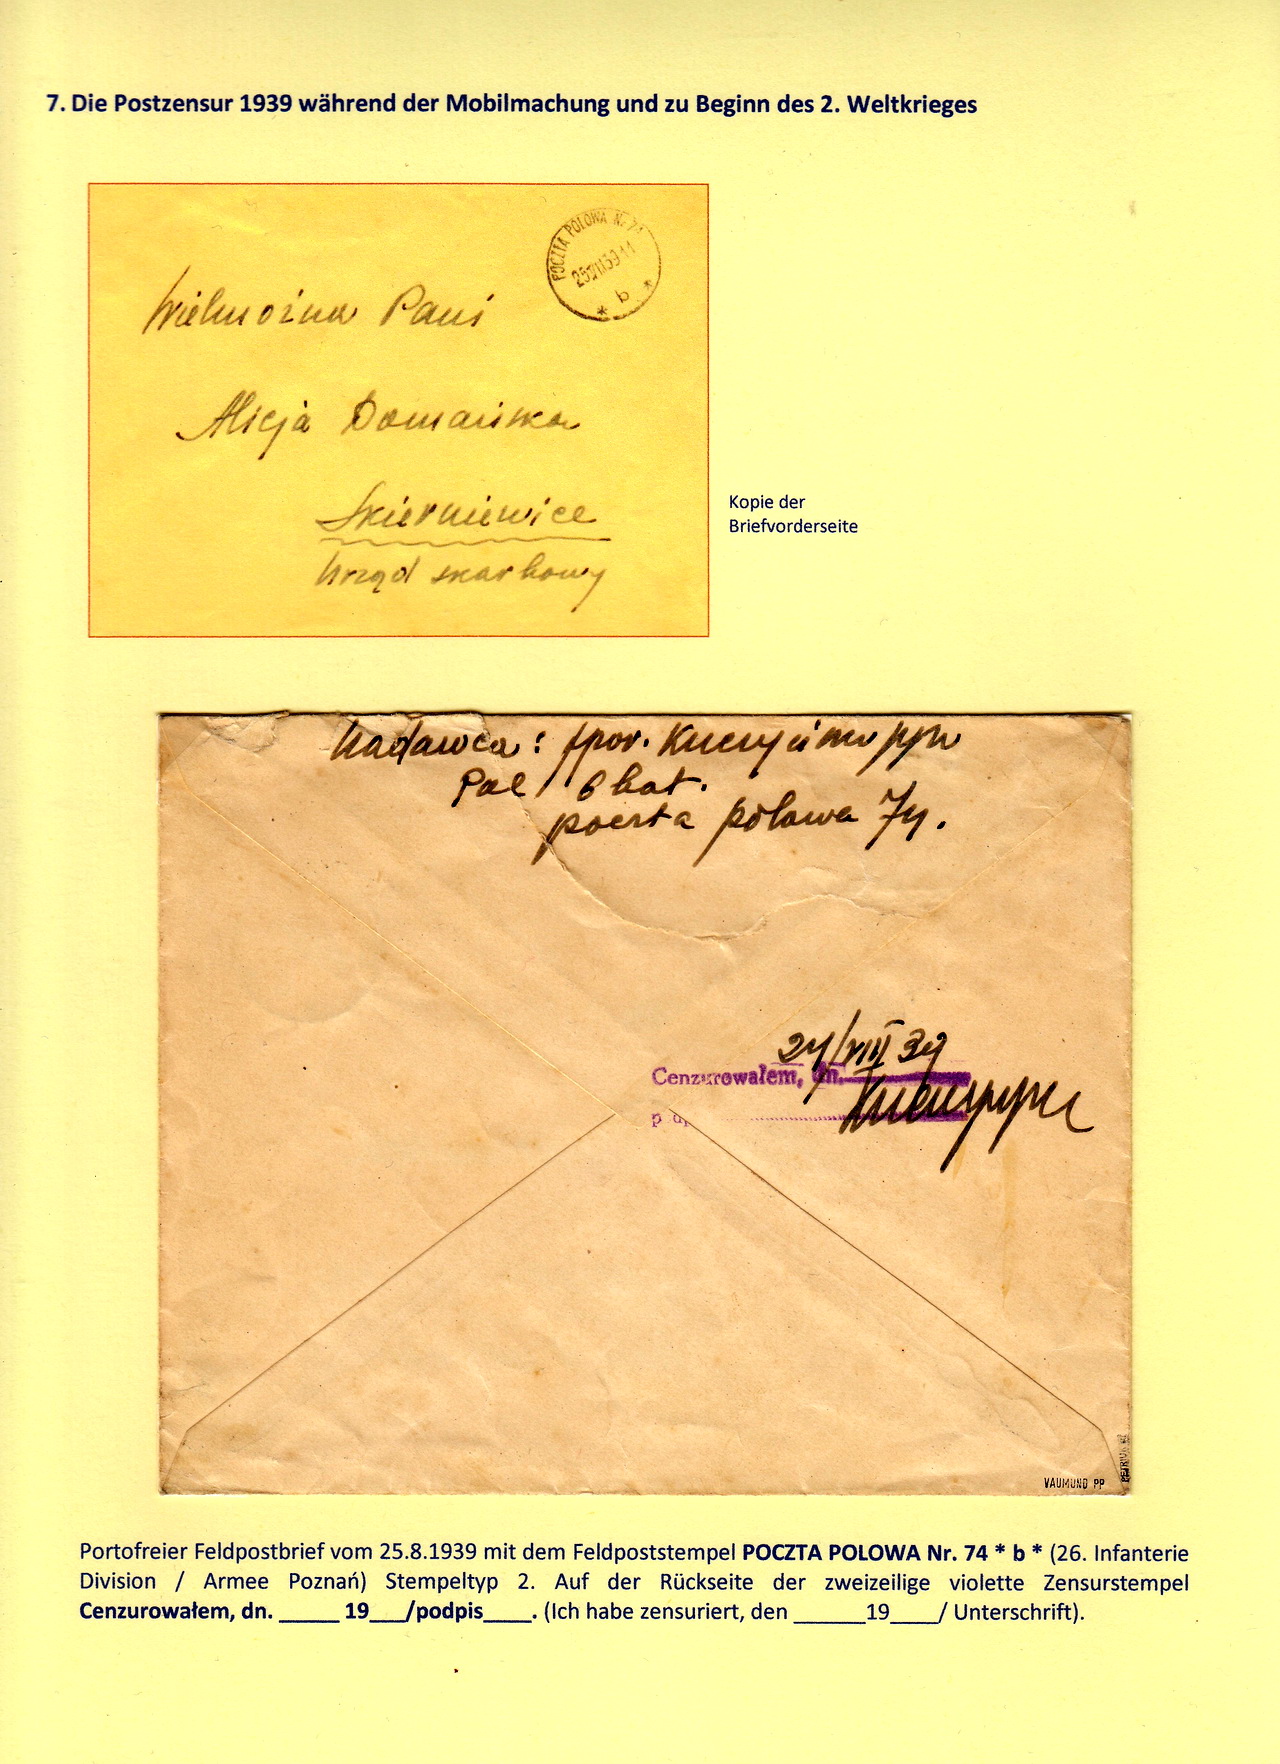 7. Die Postzensur 1939 während der Mobilmachung und zu Beginn des 2. Weltkrieges
POCZTA POLOWA Nr. 74
25 VIII 39 11
* b *
Wielmożna Pani
Alicja Domańska
Skierniewice
Urząd skarbowy
Kopie der
Briefvorderseite
Nadawca: ppor.
Pal 6 bat.
poczta polowa 74.
24/VIII 39
Cenzurowałem, dn.
VAUMUND PP
Portofreier Feldpostbrief vom 25.8.1939 mit dem Feldpoststempel POCZTA POLOWA Nr. 74 * b * (26. Infanterie
Division / Armee Poznań) Stempeltyp 2. Auf der Rückseite der zweizeilige violette Zensurstempel
Cenzurowałem, dn. _____ 19___/podpis____. (Ich habe zensuriert, den ______19____/ Unterschrift).